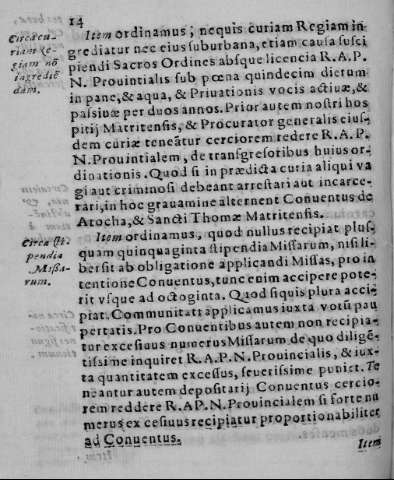 14
Circa cu-
riam re-
giam nõ
ingrediẽ
dam.
Item ordinamus; nequis curiam Regiam in
grediatur nec eius suburbana, etiam causa susci
piendi Sacros Ordines absque licencia R.A.P.
N. Prouintialis sub pœna quindecim dierum
in pane, & aqua, & Priuationis vocis actiuæ, &
passiuæ per duos annos. Prior autem nostri hos
pitij Matritensis, & Procurator generalis eius-
dem curiæ teneãtur cerciorem redere R.A.P.
N. Prouintialem, de transgresoribus huius or-
dinationis. Quod si in prædicta curia aliqui va
gi aut criminosi debeant arrestari aut incarce-
rari, in hoc grauamine alternent Conuentus de
Atocha, & Sancti Thomæ Matritensis.
Circa sti
pendia
Missa-
rum.
Item ordinamus, quod nullus recipiat plus-
quam quinquaginta stipendia Missarum, nisi li-
ber sit ab obligatione applicandi Missas, pro in
tentione Conuentus, tunc enim accipere pote-
rit vsque ad octoginta. Quod siquis plura acci-
piat. Communitati applicamus iuxta votũ pau
pertatis. Pro Conuentibus autem non recipia-
tur excesiuus numerus Missarum de quo diligẽ-
tissime inquiret R.A.P.N. Prouincialis, & iux-
ta quantitatem excessus, seuerissime puniet. Te
neantur autem depositarij Conuentus cercio-
rem reddere R.AP.N. Prouincialem si forte nu
merus excesiuus recipiatur proportionabiliter
ad Conuentus.
Item